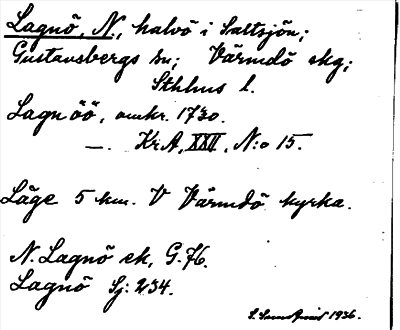 Lagnö, N., halvö i Saltsjön;
Gustavsbergs sn; Värmdö skg;
Sthlms l.
Lagnöö, omkr. 1730.
—. KrA, XXII, N:o 15.
Läge 5 km. V Värmdö kyrka.
N. Lagnö ek, G. 76.
Lagnö Sj: 234.
1936.